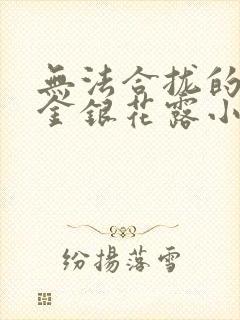 無法合拢的
金銀花露小
紛揚落雪